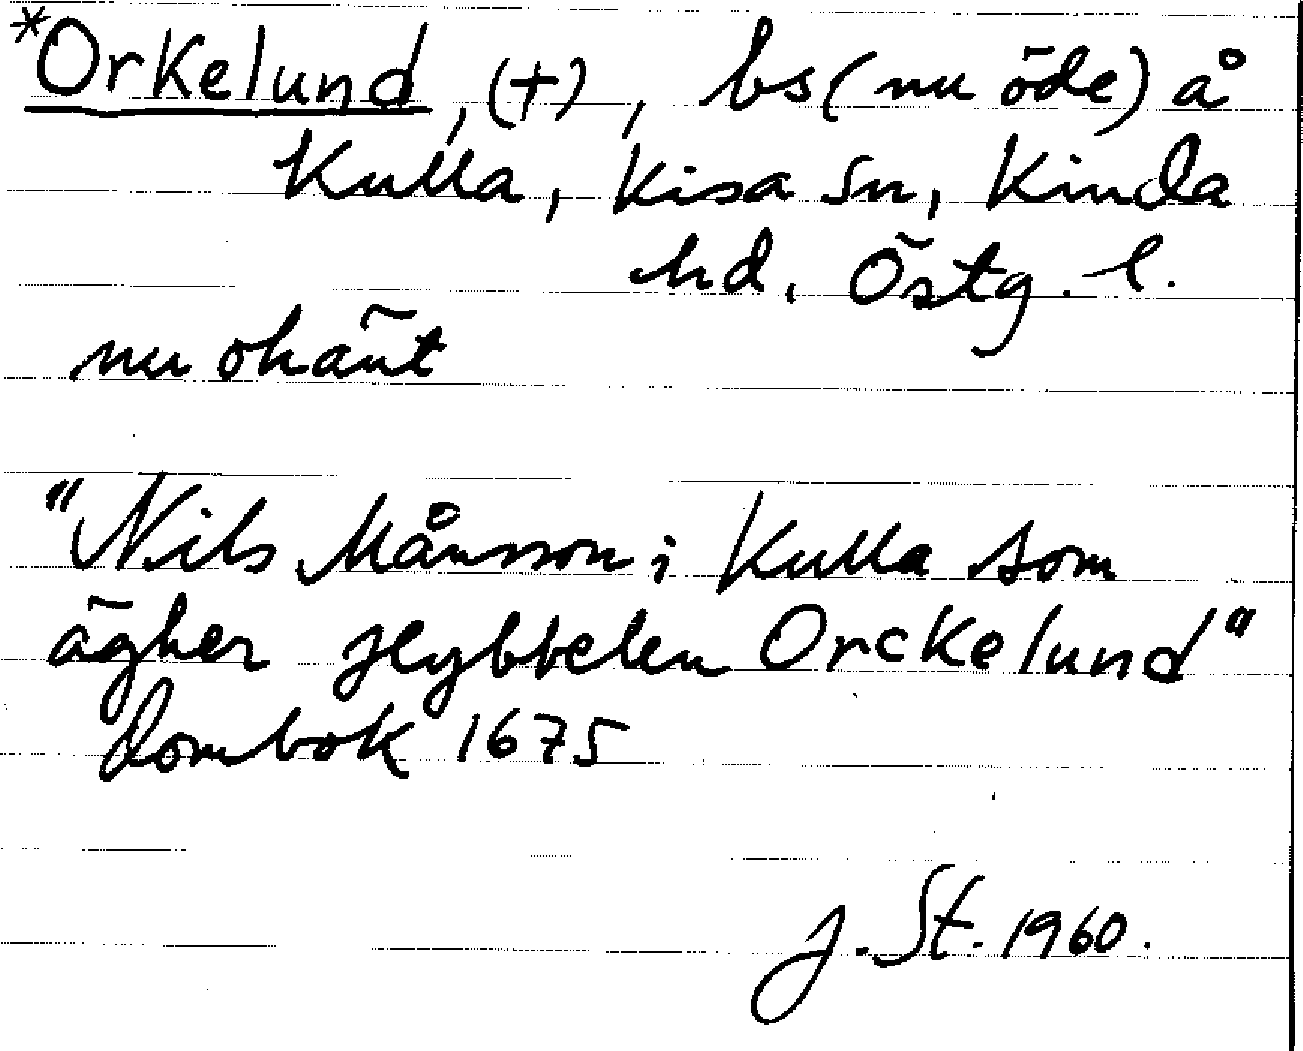 *Orkelund, (+), bs (nu öde) å
Kulla, Kisa sn, Kinda
hd, Östg. l.
nu okänt
"Nils Månsson i Kulla som
ägher Orckelund"
dombok 1675
J. St. 1960.